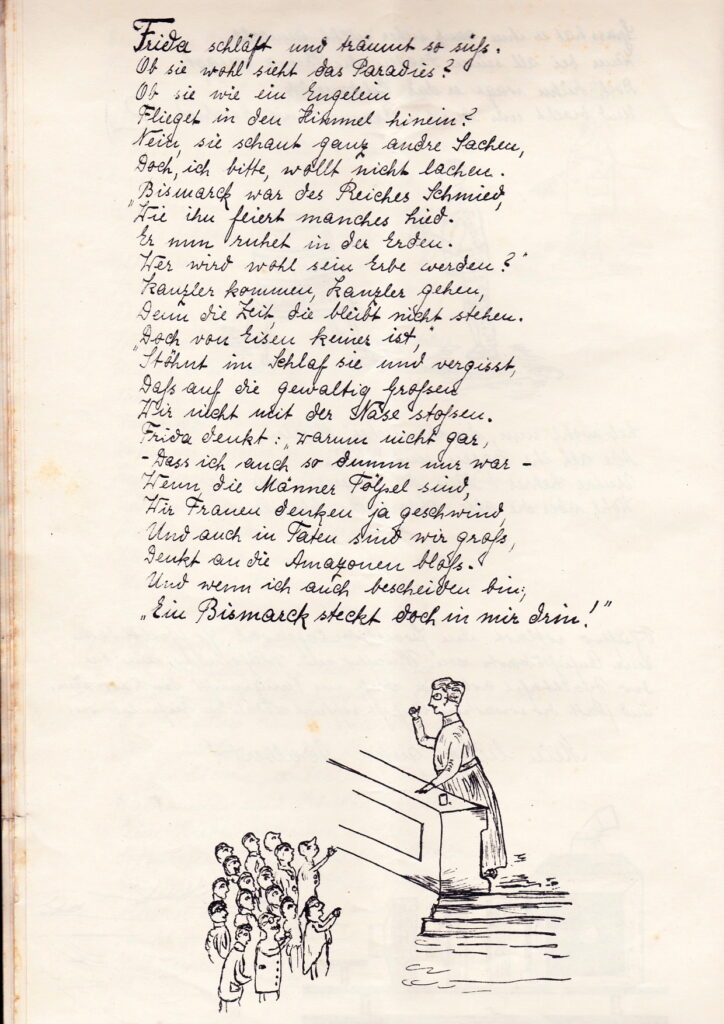 Frida schläft und träumt so süß.
Ob sie wohl sieht das Paradies?
Ob sie wie ein Engelein
Flieget in den Himmel hinein?
Nein, sie schaut ganz andre Sachen,
Doch, ich bitte, wollt nicht lachen.
„Bismarck war des Reiches Schmied,
Wie ihn feiert manches Lied.
Er nun ruhet in der Erden.
Wer wird wohl sein Erbe werden?"
Kanzler kommen, Kanzler gehen,
Denn die Zeit, die bleibt nicht stehen.
„Doch von Eisen keiner ist,"
Stöhnt im Schlaf sie und vergisst,
Daß auf die gewaltig Großen
Wir nicht mit der Nase stoßen.
Frida denkt: „warum nicht gar,
- Dass ich auch so dumm nur war -
Wenn die Männer Tölpel sind,
Wir Frauen denken ja geschwind,
Und auch in Taten sind wir groß,
Denkt an die Amazonen bloß.
Und wenn ich auch bescheiden bin,
„Ein Bismarck steckt doch in mir drin!"